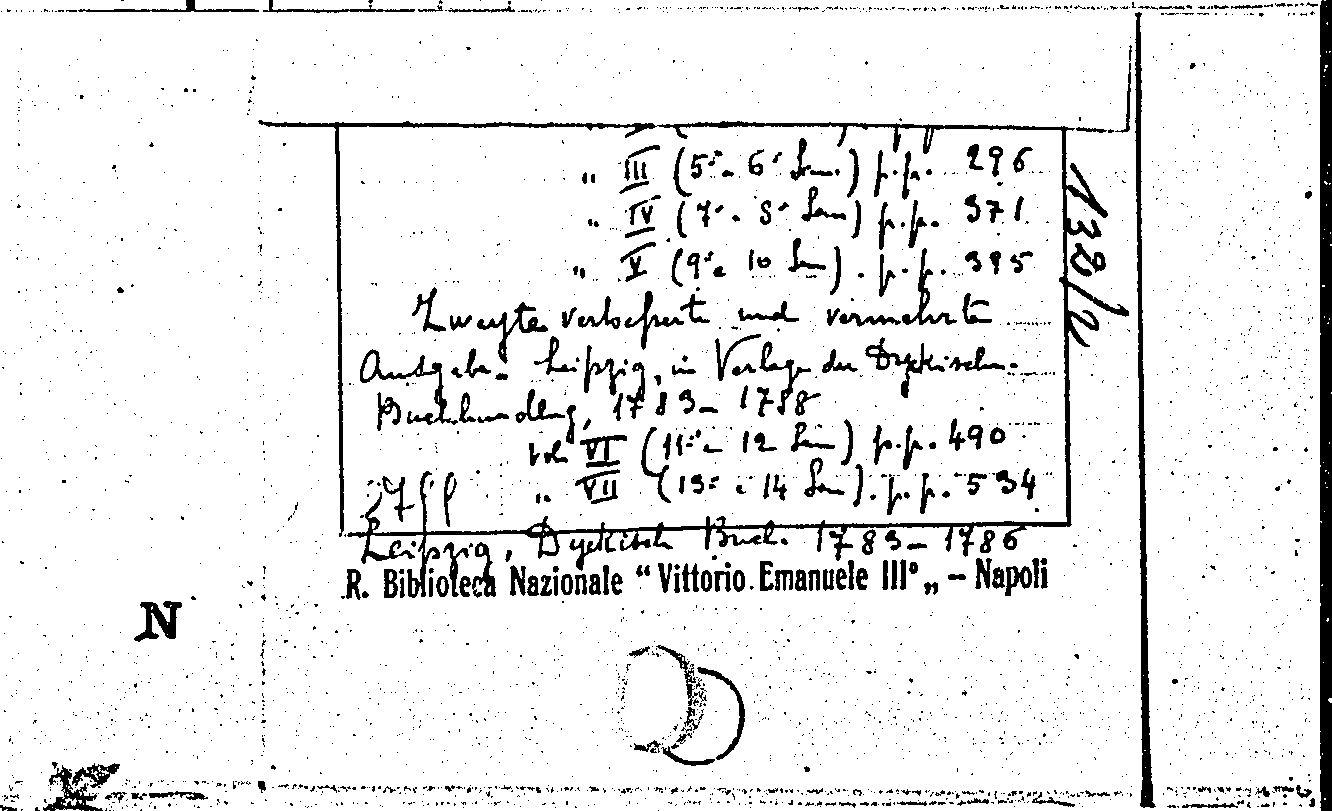 " III (5° e 6° Sem.) p.p. 296
" IV (7° e 8° Sem) p.p. 371
" V (9° e 10 Sem). p.p. 395
Zweyte verbesserte und vermehrte
Ausgabe. Leipzig, in Verlage der Dyckischen
Buchhandlung, 1783- 1788
vol VI (11° e 12 Sem) p.p. 490
" VII (13° e 14 Sem). p.p. 534
Leipzig, Dyckisch Buch. 1783- 1786
R. Biblioteca Nazionale “ Vittorio Emanuele III° „ – Napoli
138/2
N